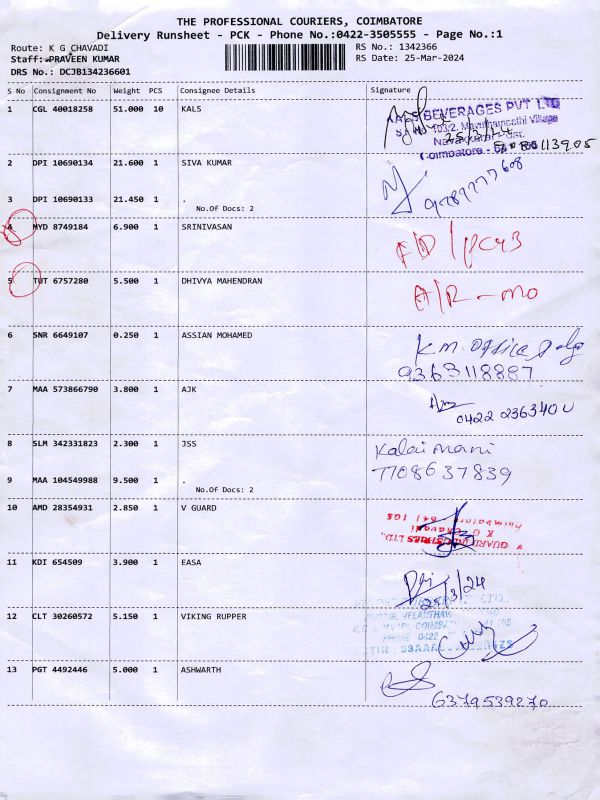 THE PROFESSIONAL COURIERS, COIMBATORE
Delivery Runsheet - PCK - Phone No.:0422-3505555 - Page No.:1
Route: K G CHAVADI
RS No.: 1342366
Staff: PRAVEEN KUMAR
RS Date: 25-Mar-2024
DRS No.: DCJB134236601
S No Consignment No Weight PCS Consignee Details Signature
1 CGL 40018258 51.000 10 KALS
KALS BEVERAGES PVT LTD
25/3/24
Coimbatore
2 DPI 10690134 21.600 1 SIVA KUMAR
3 DPI 10690133 21.450 1 .
No.Of Docs: 2
4 MYD 8749184 6.900 1 SRINIVASAN
5 TUT 6757280 5.500 1 DHIVYA MAHENDRAN
A/R - MO
6 SNR 6649107 0.250 1 ASSIAN MOHAMED
K.M. Office
9363118887
7 MAA 573866790 3.800 1 AJK
0422 236340
8 SLM 342331823 2.300 1 JSS
Kalai mani
7708637839
9 MAA 104549988 9.500 1 .
No.Of Docs: 2
10 AMD 28354931 2.850 1 V GUARD
V GUARD INDUSTRIES LTD.,
K G Chavadi
Coimbatore 641 105
11 KDI 654509 3.900 1 EASA
25/3/24
12 CLT 30260572 5.150 1 VIKING RUPPER
PHONE 0422
13 PGT 4492446 5.000 1 ASHWARTH
6379539270